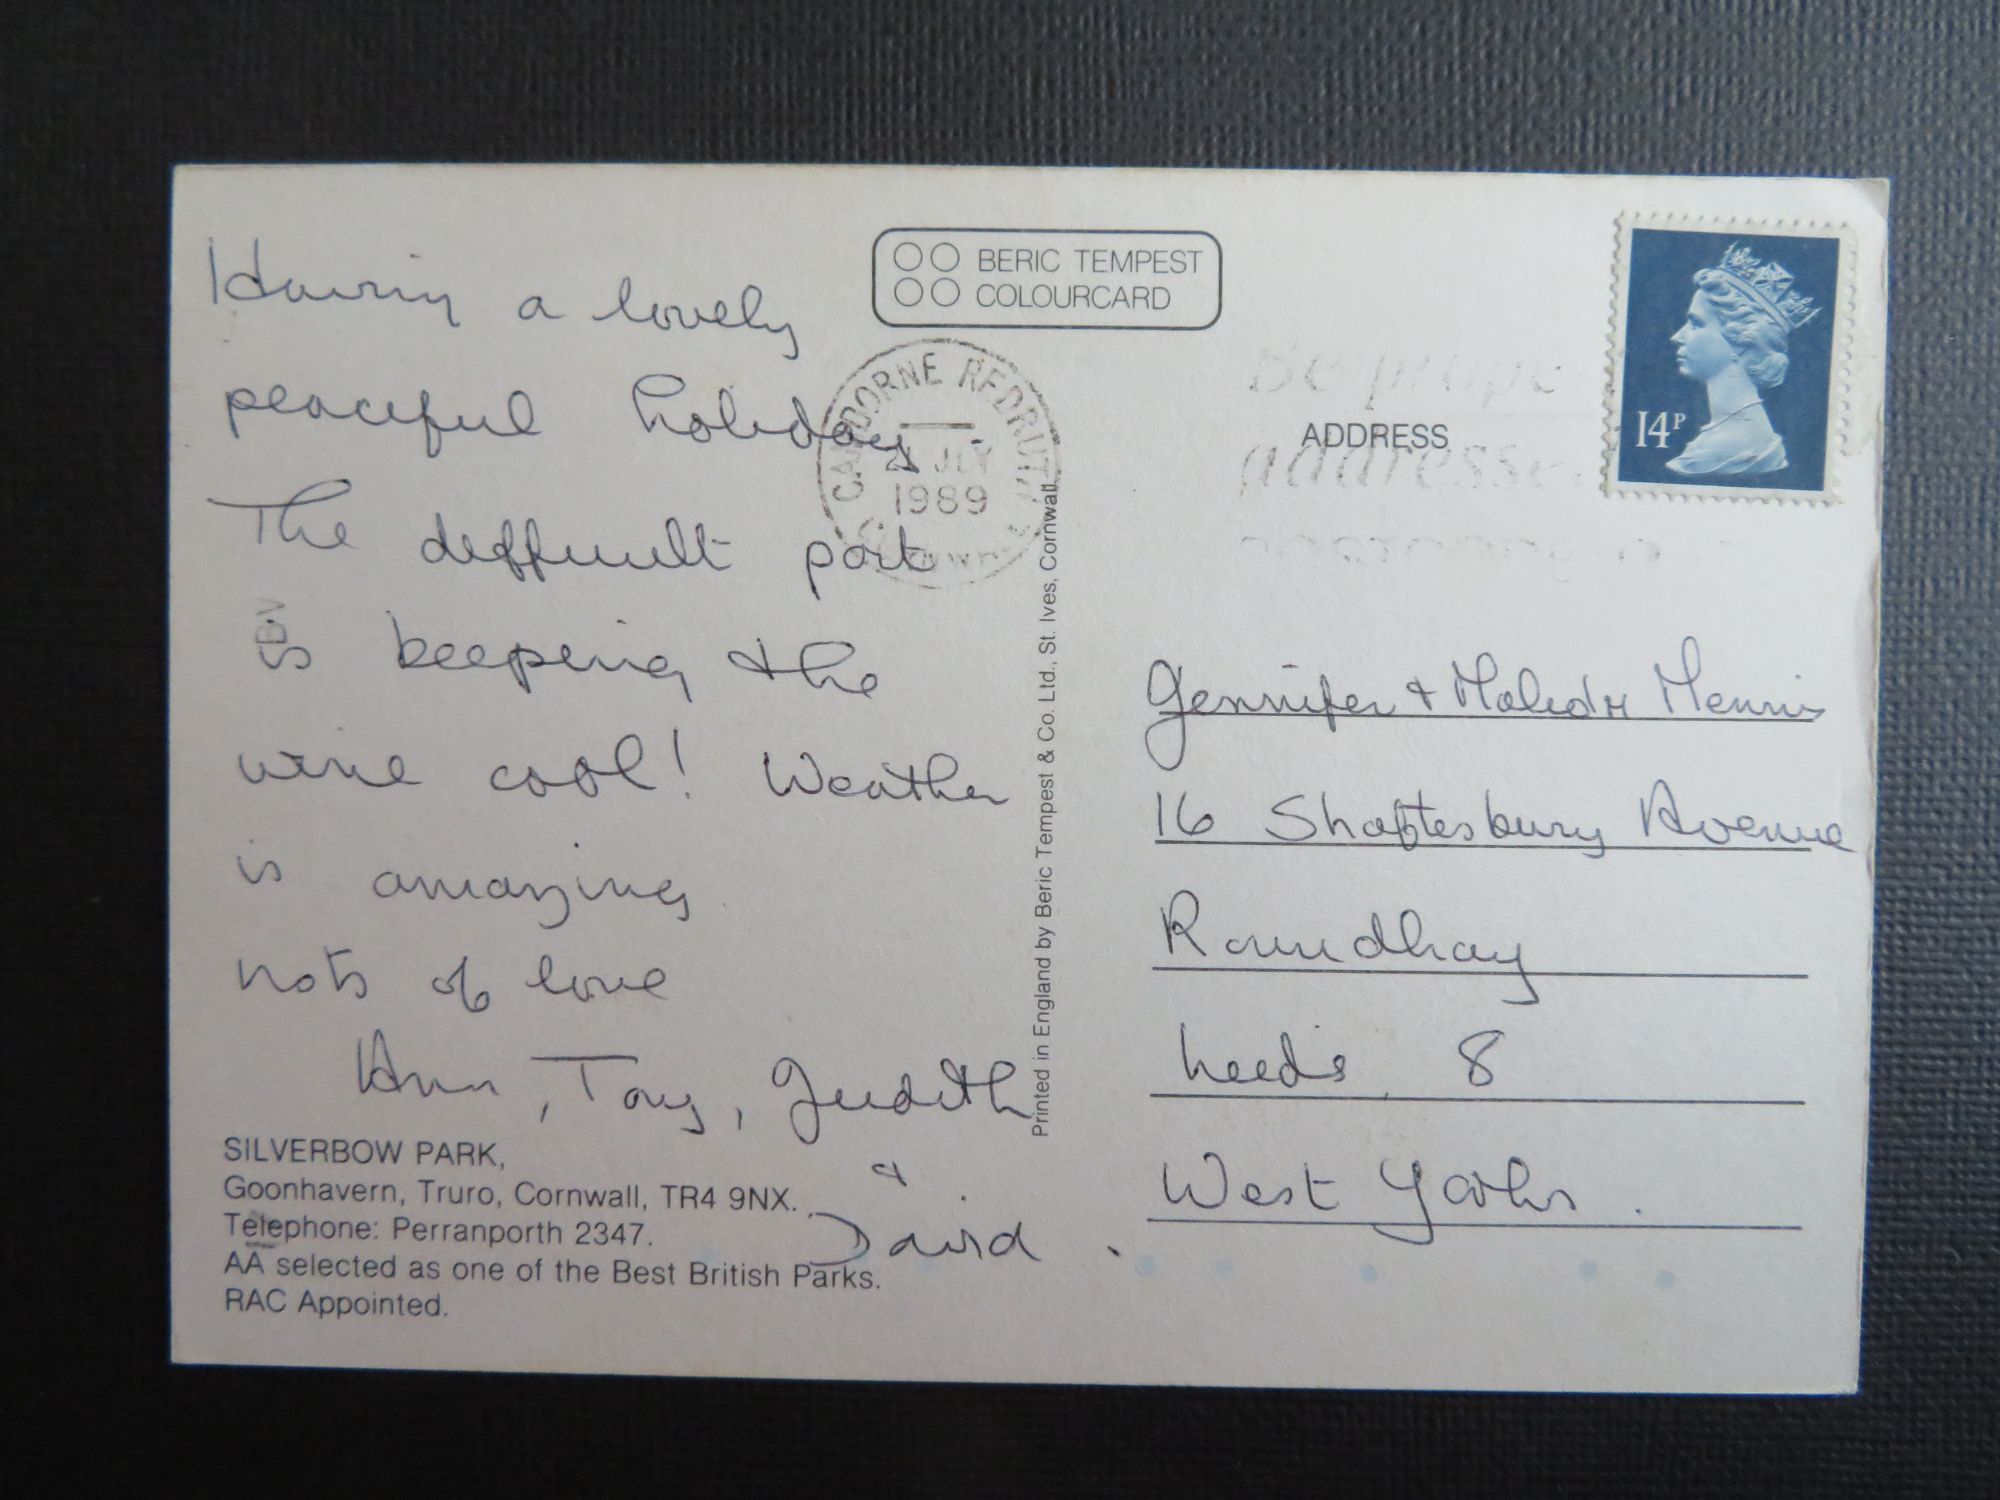 BERIC TEMPEST
COLOURCARD
Having a lovely
peaceful holiday.
The difficult part
is keeping the
wine cool! Weather
is amazing
Lots of love
Ann, Tony, Judith
&
David.
SILVERBOW PARK,
Goonhavern, Truro, Cornwall, TR4 9NX.
Telephone: Perranporth 2347.
AA selected as one of the Best British Parks.
RAC Appointed.
CAMBORNE REDRUTH
JLY
1989
Printed in England by Beric Tempest & Co. Ltd., St. Ives, Cornwall
14P
Be prope
addresse
ADDRESS
Jennifer +
16 Shaftesbury Avenue
Roundhay
Leeds 8
West Yorks.